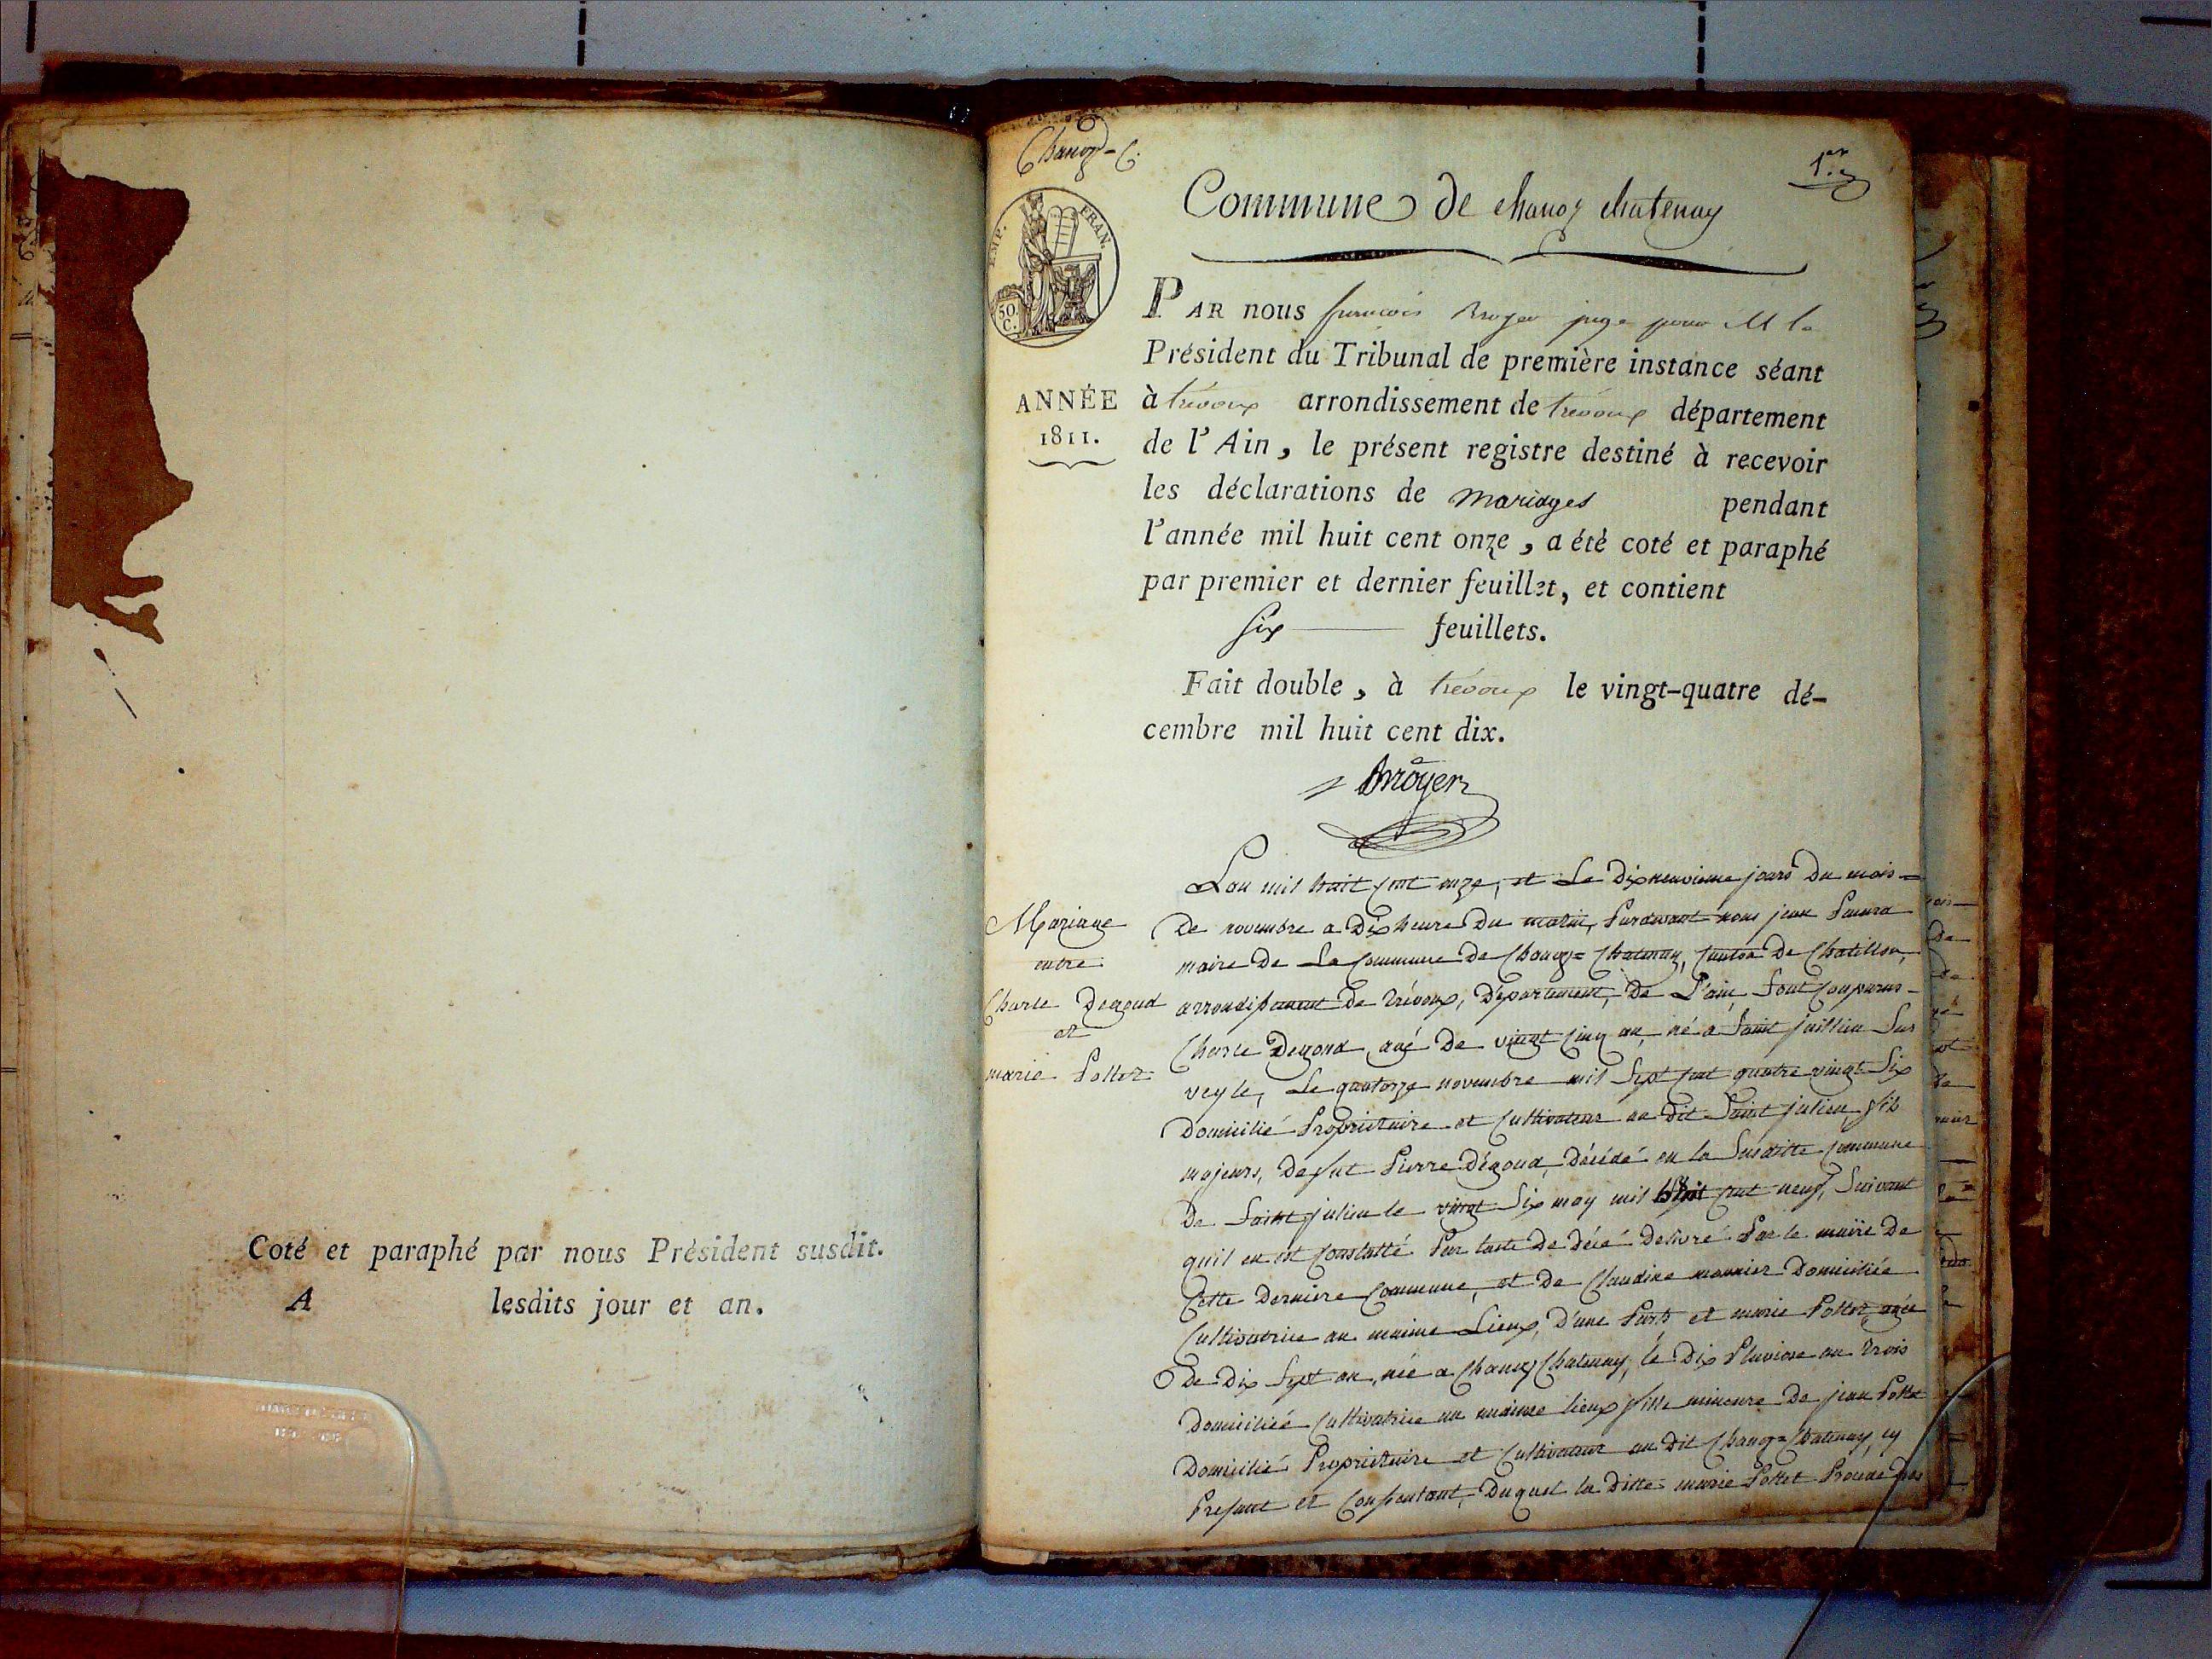 Coté et paraphé par nous Président susdit.
A lesdits jour et an.
Chanoz-C.
1.er
IMP. FRAN.
50. C.
Commune de chanoz chatenay
ANNÉE
1811.
PAR nous francois Brroyer juge pour M le
Président du Tribunal de première instance séant
à trévoux arrondissement de trévoux département
de l'Ain, le présent registre destiné à recevoir
les déclarations de mariages pendant
l'année mil huit cent onze, a été coté et paraphé
par premier et dernier feuillet, et contient
six feuillets.
Fait double, à trévoux le vingt-quatre dé-
cembre mil huit cent dix.
Brroyer
Mariage
entre
Charle Degoud
et
marie Pollet
Lan mil huit cent onze, et Le Dixneuvieme jours Du mois =
De novembre a Dix heure Du matin, Pardevant nous jean
maire De La Commune De Chanoz = Chatenay, Canton De Chatillon,
arrondissement De Trévoux, Département, De L'ain, Sont Comparus -
Charle Degoud, agé De vingt Cinq an, né a Saint juillien Sur
veyle, Le quatorze novembre mil Sept Cent quatre vingt Six
Domicilié Propriétaire et Cultivateur au dit Saint julien fils
majeurs, De fut Pierre Dégoud, Décédé en la Susditte Commune
De Saint julien le vingt Six may mil huit Cent neuf, Suivant
quil en est Constatté Par lacte De décé Delivré Par le maire De
Cette Derniere Commune, et De Claudine monnier Domiciliée
Cultivatrice au meime Lieux, D'une Part, et marie Pollet, agée
De Dix Sept an, née a Chanoz Chatenay, le Dix Pluviose an trois
Domiciliée Cultivatrice au meime lieux fille mineure De jean Pollet
Domicilié Propriétaire et Cultivateur au Dit Chanoz = Chatenay, cy
Présent et Consentant, Duquel la Ditte marie Pollet Procède